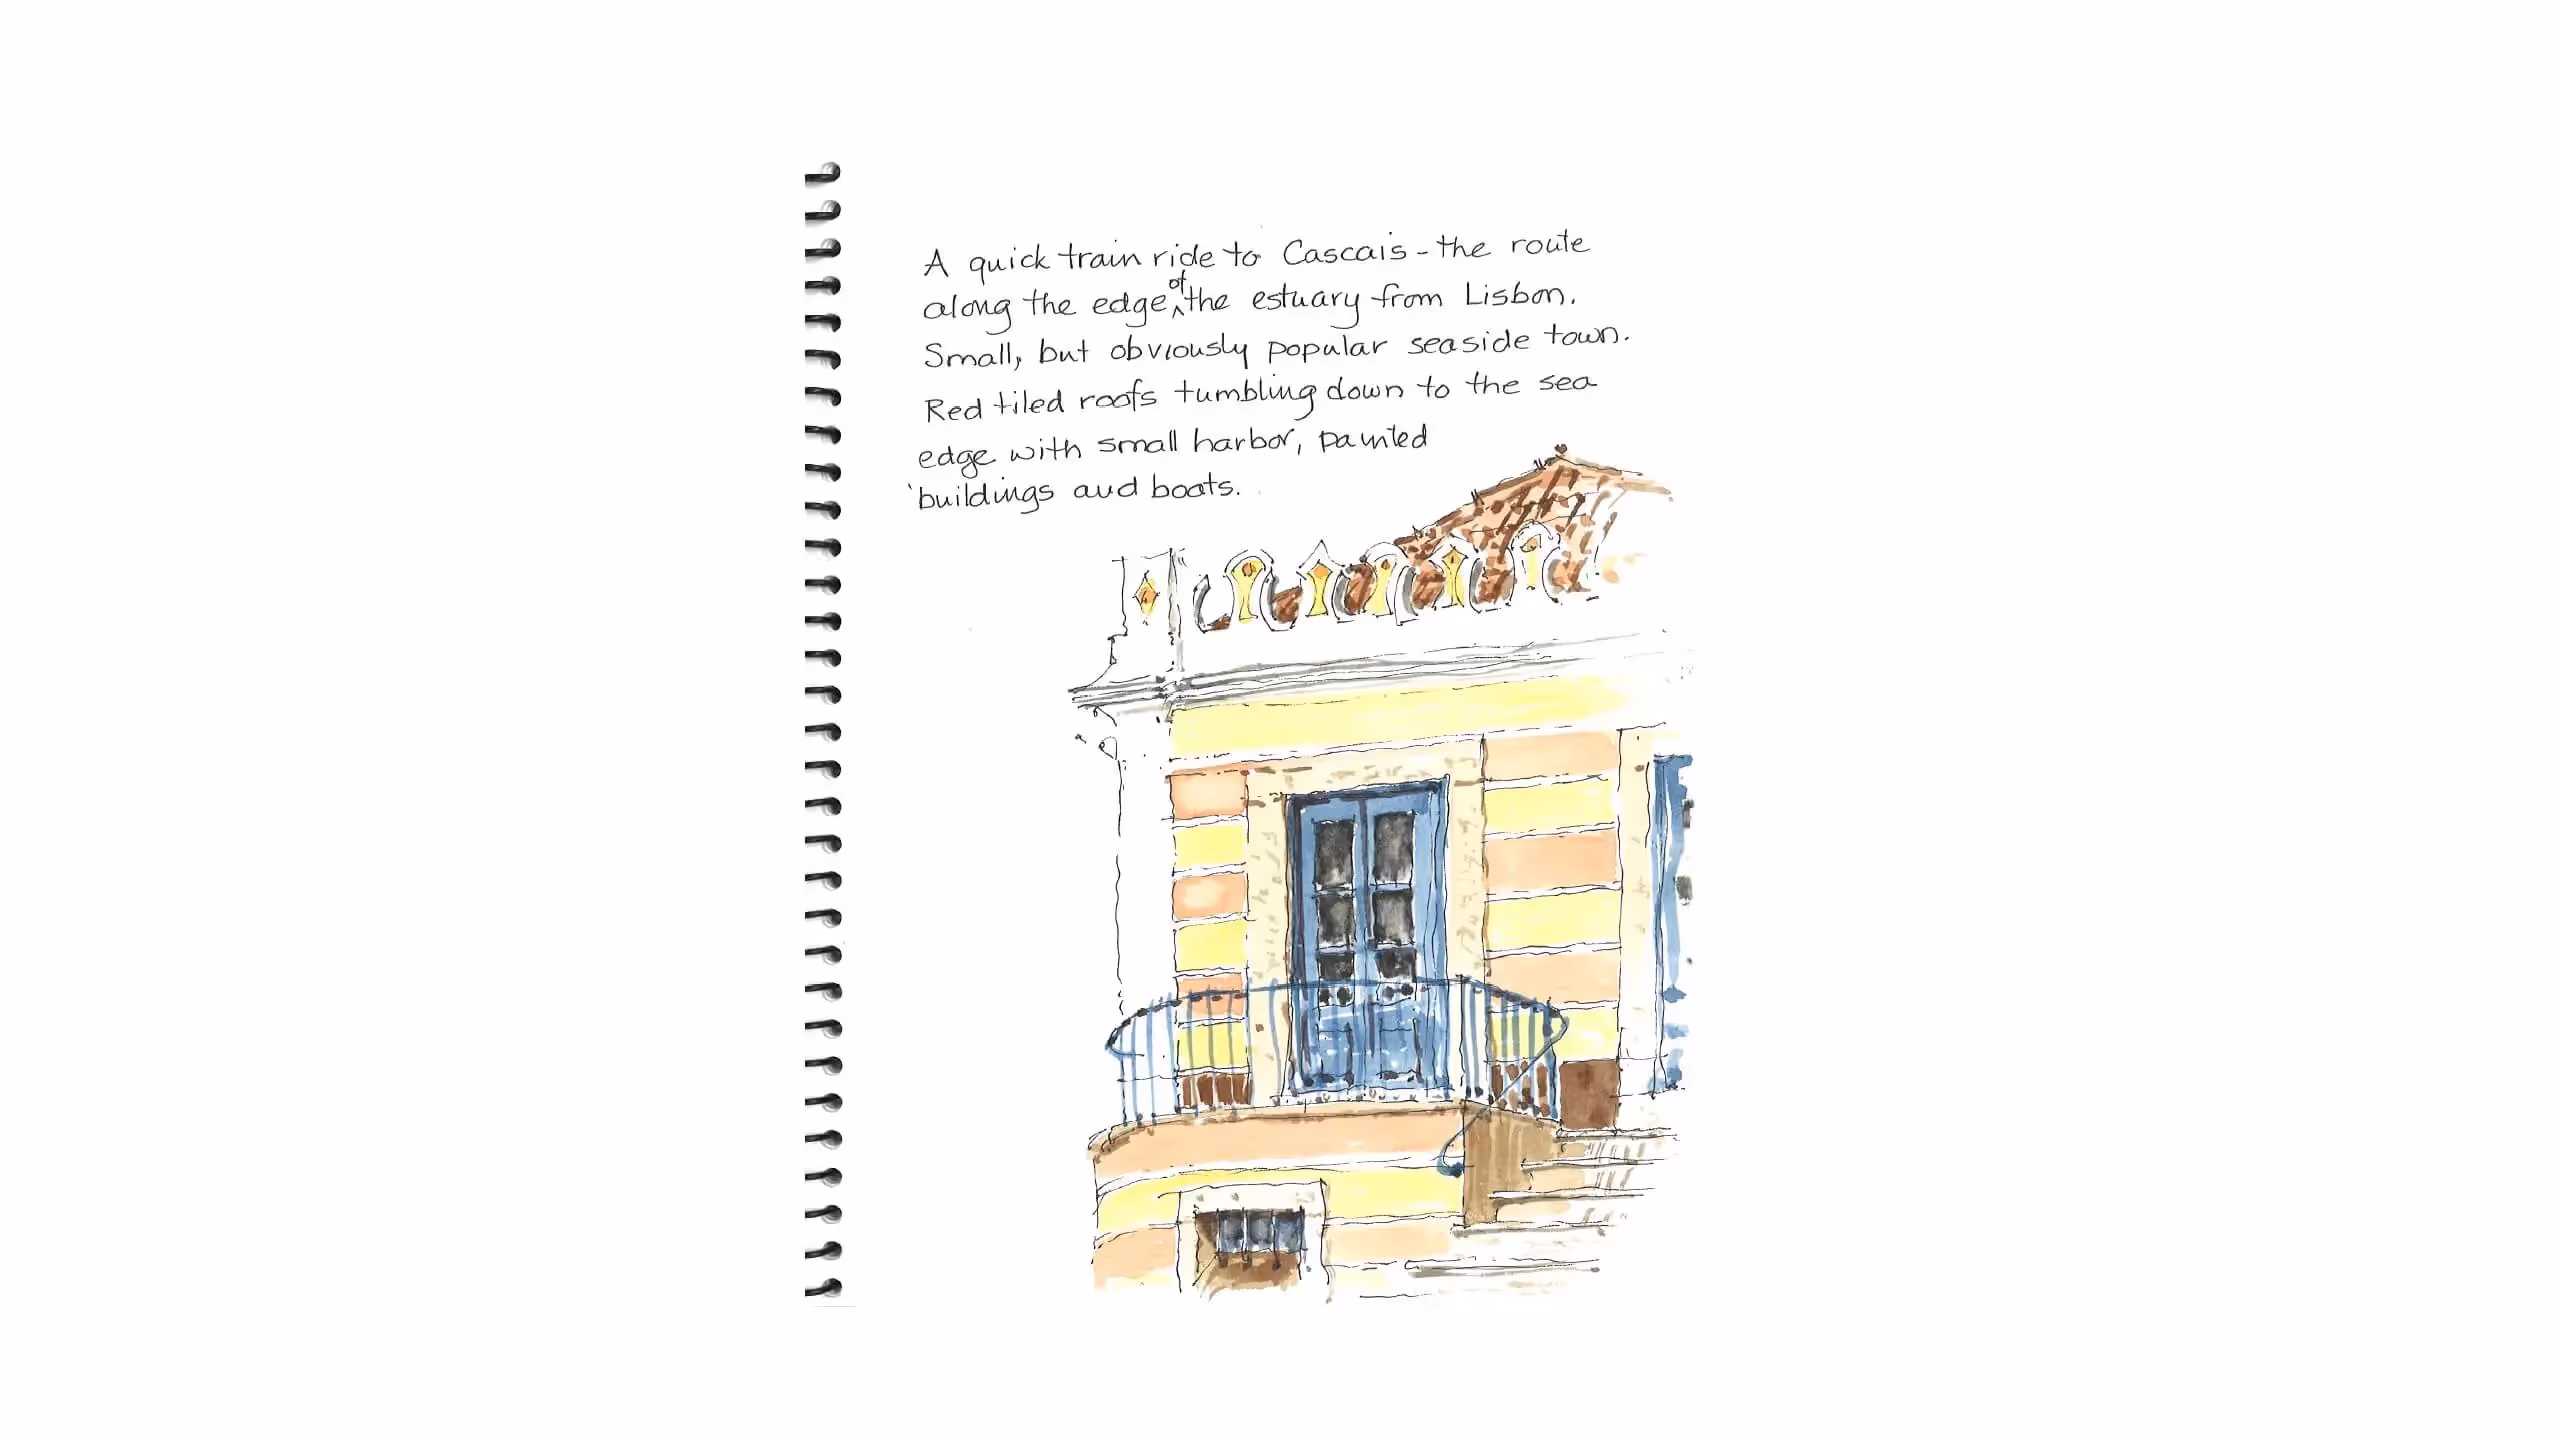 A quick train ride to Cascais - the route
along the edge of the estuary from Lisbon.
Small, but obviously popular seaside town.
Red tiled roofs tumbling down to the sea
edge with small harbor, painted
buildings and boats.